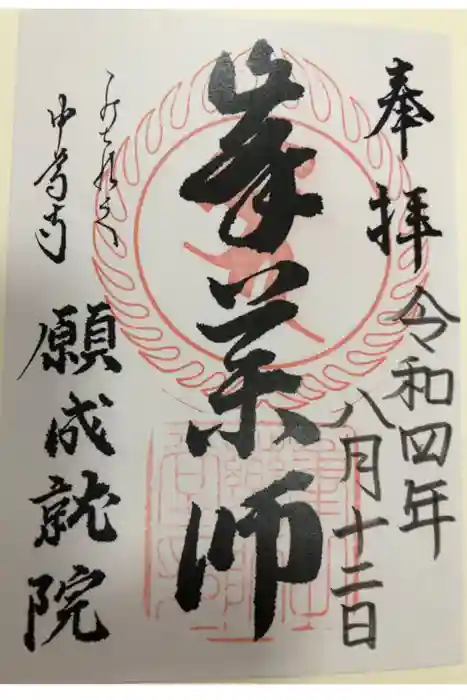 奉拝
令和四年
八月十二日
峯薬師
中尊寺
願成就院